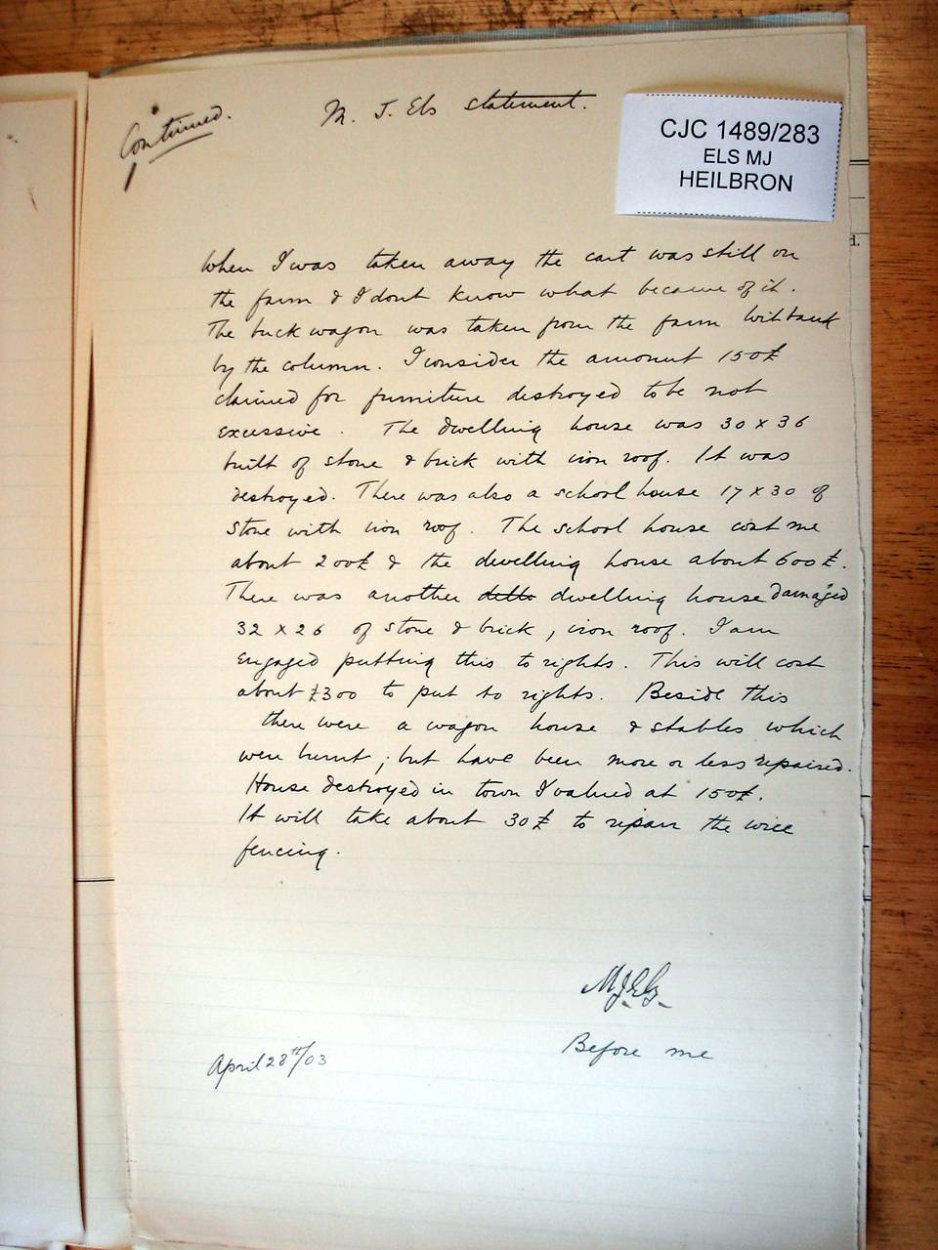 Continued.
M. J. Els statement.
CJC 1489/283
ELS MJ
HEILBRON
d.
When I was taken away the cart was still on
the farm & I dont know what became of it.
The buck wagon was taken from the farm Witbank
by the column. I consider the amount 150£
claimed for furniture destroyed to be not
excessive. The dwelling house was 30 x 36
built of stone & brick with iron roof. It was
destroyed. There was also a school house 17 x 30 of
stone with iron roof. The school house cost me
about 200£ & the dwelling house about 600£.
There was another ditto dwelling house damaged
32 x 26 of stone & brick, iron roof. I am
engaged putting this to rights. This will cost
about £300 to put to rights. Beside this
there were a wagon house & stables which
were burnt; but have been more or less repaired.
House destroyed in town I valued at 150£.
It will take about 30£ to repair the wire
fencing.
MJEls
Before me
April 28th/03